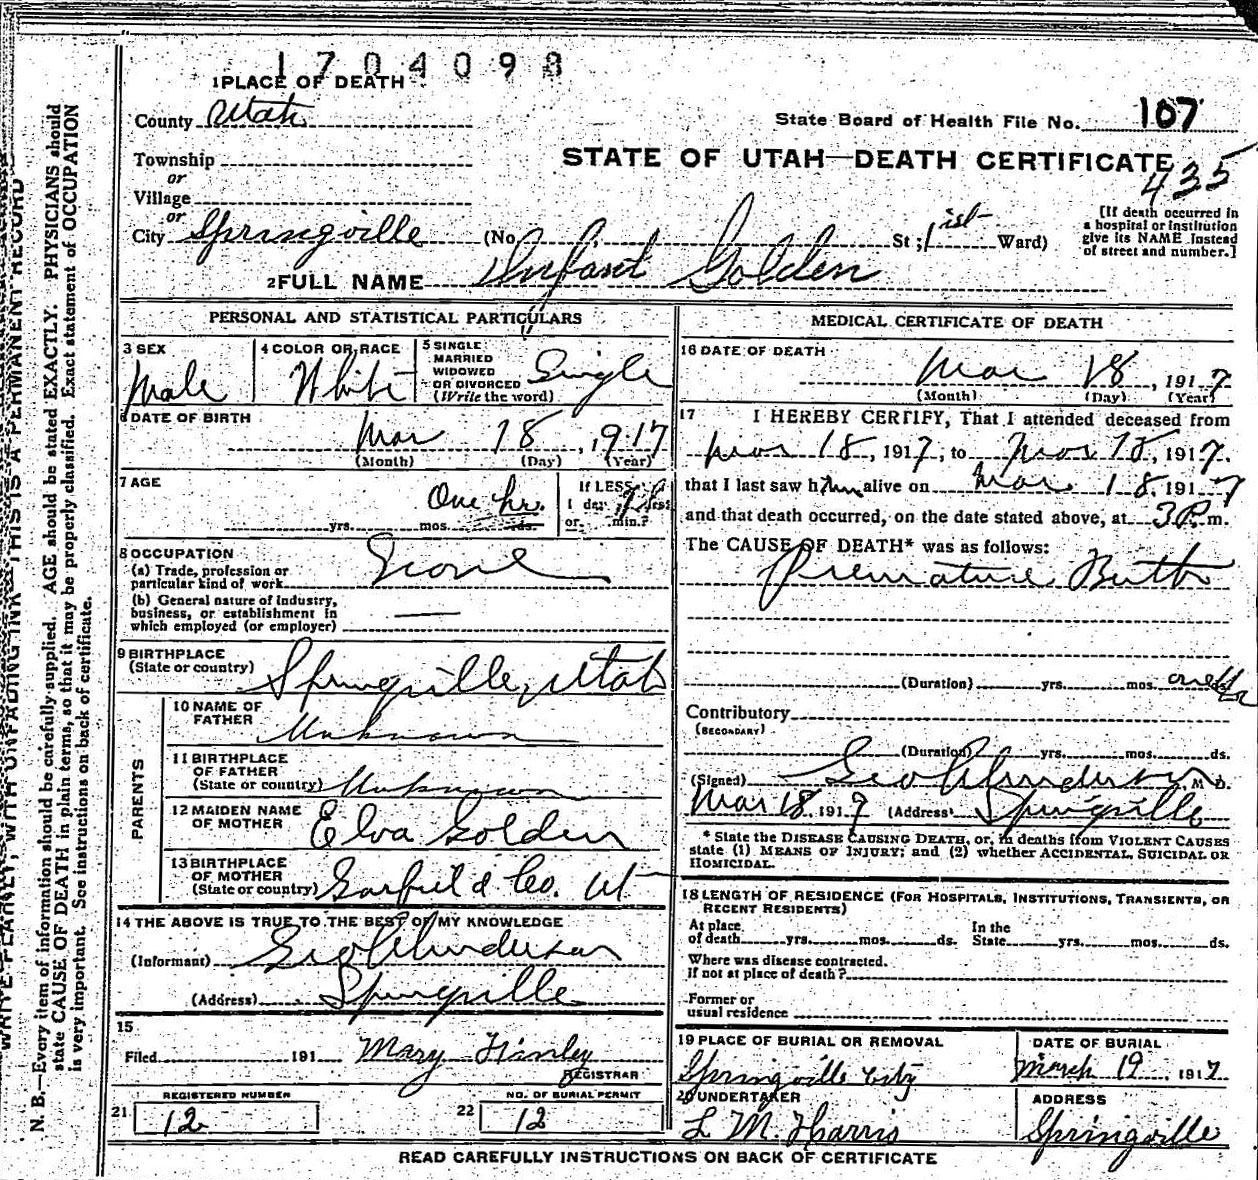 1704098
1 PLACE OF DEATH
County Utah
State Board of Health File No. 107
Township
STATE OF UTAH—DEATH CERTIFICATE
435
or
Village
or
City Springville (No. St ; 1st Ward)
[If death occurred in
a hospital or institution
give its NAME instead
of street and number.]
2 FULL NAME Infant Golden
PERSONAL AND STATISTICAL PARTICULARS
3 SEX
Male
4 COLOR OR RACE
White
5 SINGLE
MARRIED
WIDOWED
OR DIVORCED
(Write the word)
Single
6 DATE OF BIRTH
Mar 18, 1917
(Month) (Day) (Year)
7 AGE
One hr.
yrs. mos. ds.
If LESS
1 day, 1 hrs.
or min.?
8 OCCUPATION
(a) Trade, profession or
particular kind of work
(b) General nature of industry,
business, or establishment in
which employed (or employer) —
9 BIRTHPLACE
(State or country) Springville, Utah
PARENTS
10 NAME OF
FATHER
Unknown
11 BIRTHPLACE
OF FATHER
(State or country) Unknown
12 MAIDEN NAME
OF MOTHER Elva Golden
13 BIRTHPLACE
OF MOTHER
(State or country) Garfield Co. Ut
14 THE ABOVE IS TRUE TO THE BEST OF MY KNOWLEDGE
(Informant) Geo A Anderson
(Address) Springville
15
Filed 191 Mary Hanley
REGISTRAR
REGISTERED NUMBER
21 12
NO. OF BURIAL PERMIT
22 12
MEDICAL CERTIFICATE OF DEATH
16 DATE OF DEATH
Mar 18, 1917
(Month) (Day) (Year)
17 I HEREBY CERTIFY, That I attended deceased from
Mar 18, 1917, to Mar 18, 1917.
that I last saw him alive on Mar 18. 1917
and that death occurred, on the date stated above, at 3 P. m.
The CAUSE OF DEATH* was as follows:
Premature Birth
(Duration) yrs. mos. one hr
Contributory
(SECONDARY)
(Duration) yrs. mos. ds.
(Signed) Geo A Anderson, M. D.
Mar 18. 1917 (Address) Springville
* State the DISEASE CAUSING DEATH, or, in deaths from VIOLENT CAUSES
state (1) MEANS OF INJURY; and (2) whether ACCIDENTAL, SUICIDAL OR
HOMICIDAL.
18 LENGTH OF RESIDENCE (FOR HOSPITALS, INSTITUTIONS, TRANSIENTS, OR
RECENT RESIDENTS)
At place
of death yrs. mos. ds.
In the
State yrs. mos. ds.
Where was disease contracted.
If not at place of death?
Former or
usual residence
19 PLACE OF BURIAL OR REMOVAL
Springville City
DATE OF BURIAL
March 19 1917
20 UNDERTAKER
L M. Harris
ADDRESS
Springville
READ CAREFULLY INSTRUCTIONS ON BACK OF CERTIFICATE
WRITE PLAINLY, WITH UNFADING INK—THIS IS A PERMANENT RECORD
N. B.—Every item of information should be carefully supplied. AGE should be stated EXACTLY. PHYSICIANS should
state CAUSE OF DEATH in plain terms, so that it may be properly classified. Exact statement of OCCUPATION
is very important. See instructions on back of certificate.